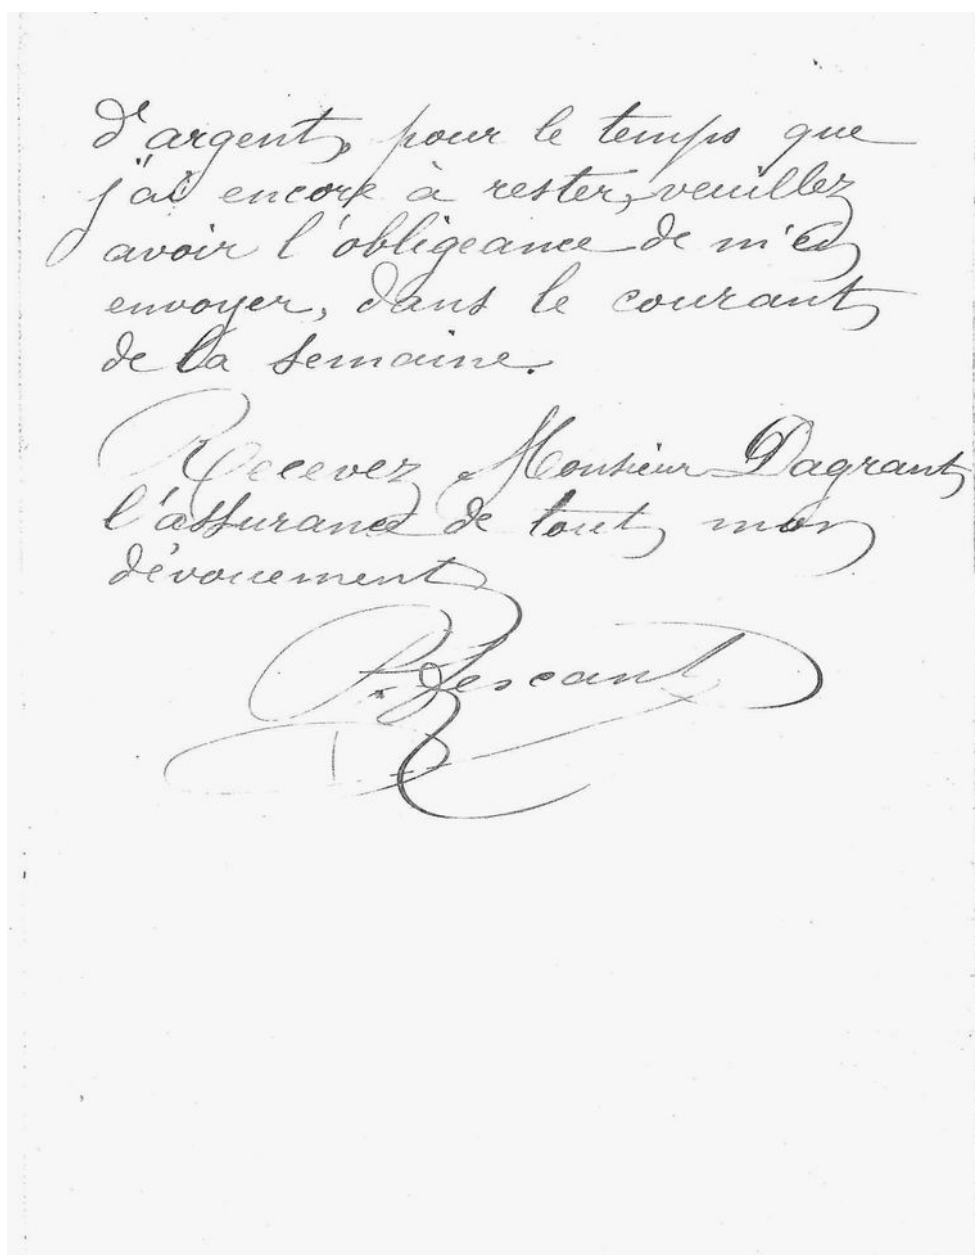 d'argent, pour le temps que
j'ai encore à rester, veuillez
avoir l'obligeance de m'en
envoyer, dans le courant
de la semaine.
Recevez Monsieur Dagrant
l'assurance de tout mon
dévouement